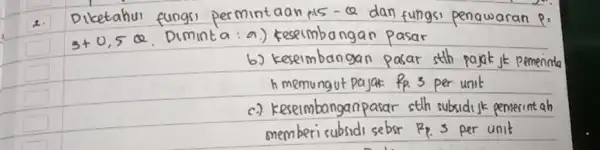 2. Diketahui fungsi permintaan P15 - Q dan fungsi penawaran P=
3 + 0,5 Q. Diminta : a.) keseimbangan pasar
b.) keseimbangan pasar stlh pajak jk pemerinta
h memungut pajak Rp. 3 per unit
c.) Keseimbangan pasar stlh subsidi jk pemerintah
memberi subsidi sebsr Rp. 3 per unit